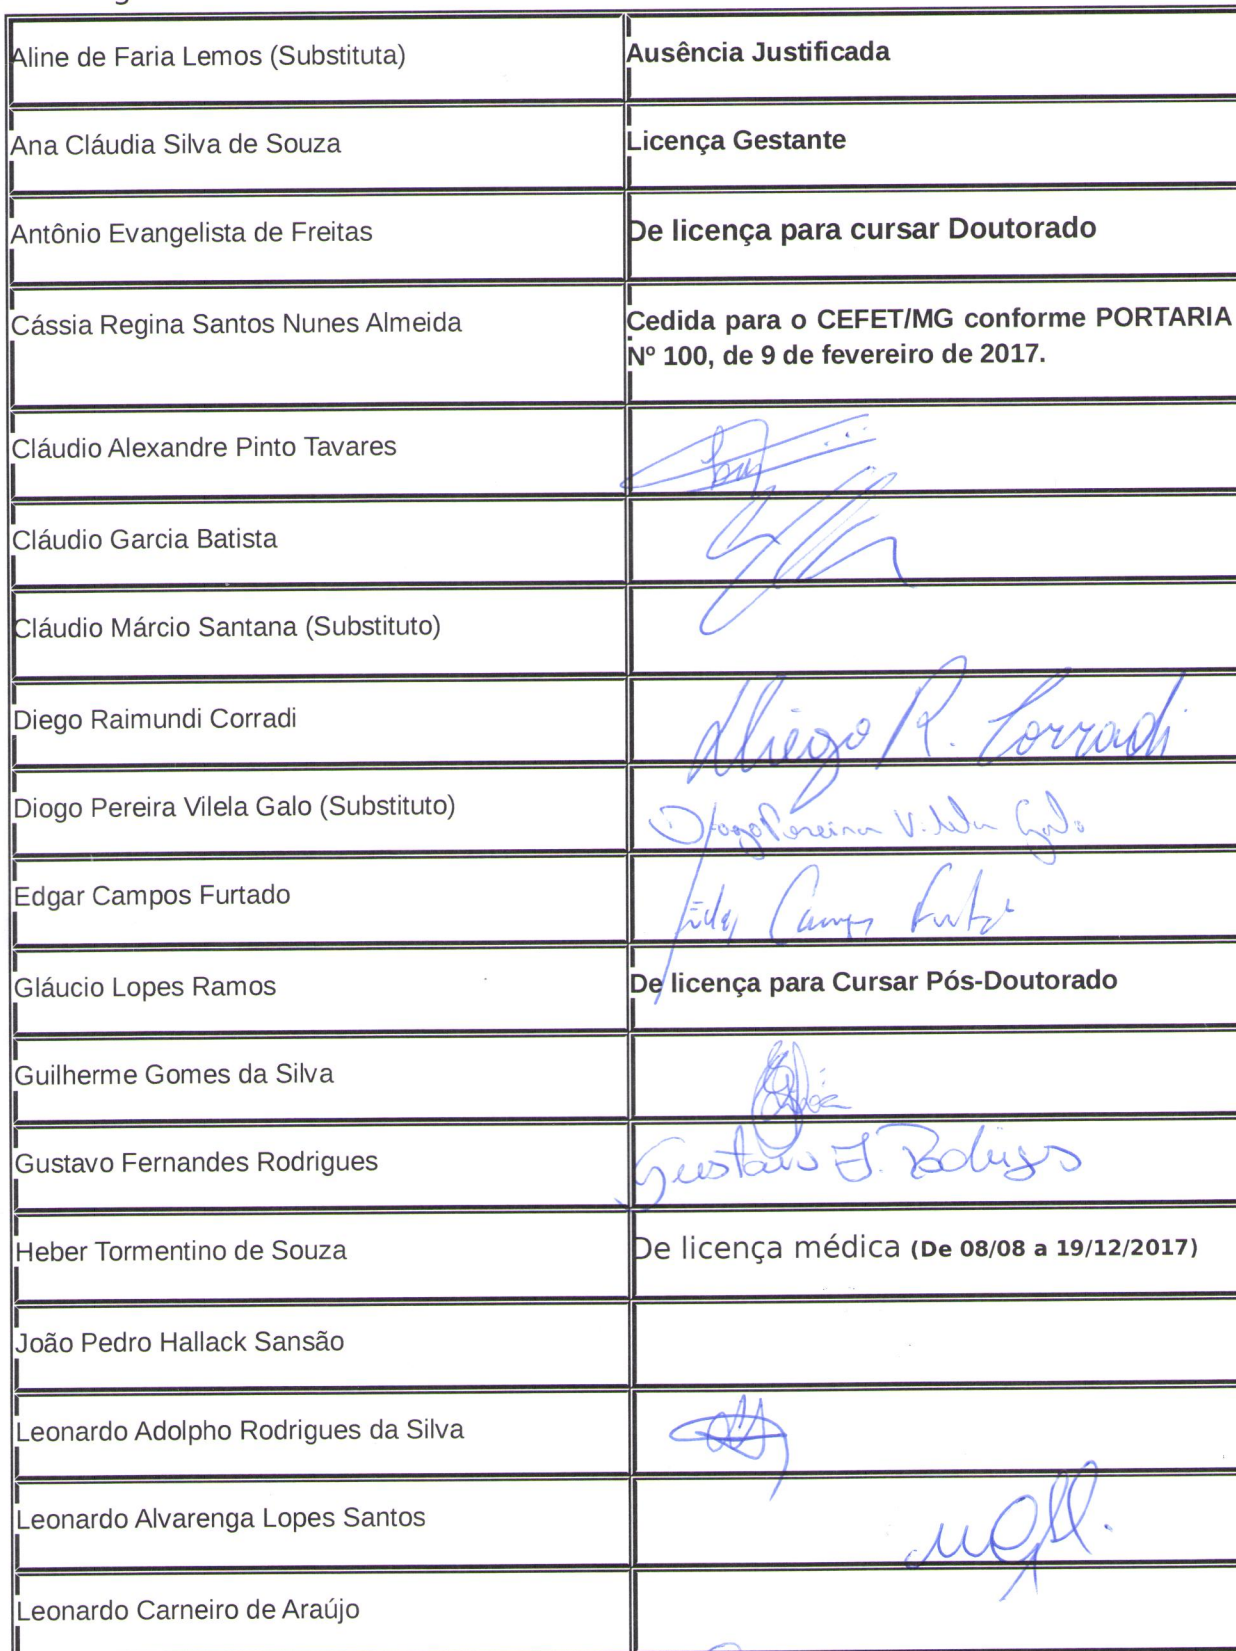 Aline de Faria Lemos (Substituta) Ausência Justificada
Ana Cláudia Silva de Souza Licença Gestante
Antônio Evangelista de Freitas De licença para cursar Doutorado
Cássia Regina Santos Nunes Almeida Cedida para o CEFET/MG conforme PORTARIA
Nº 100, de 9 de fevereiro de 2017.
Cláudio Alexandre Pinto Tavares
Cláudio Garcia Batista
Cláudio Márcio Santana (Substituto)
Diego Raimundi Corradi Diego R. Corradi
Diogo Pereira Vilela Galo (Substituto) Diogo Pereira Vilela Galo
Edgar Campos Furtado Campos
Gláucio Lopes Ramos De licença para Cursar Pós-Doutorado
Guilherme Gomes da Silva
Gustavo Fernandes Rodrigues Gustavo F. Rodrigues
Heber Tormentino de Souza De licença médica (De 08/08 a 19/12/2017)
João Pedro Hallack Sansão
Leonardo Adolpho Rodrigues da Silva
Leonardo Alvarenga Lopes Santos
Leonardo Carneiro de Araújo